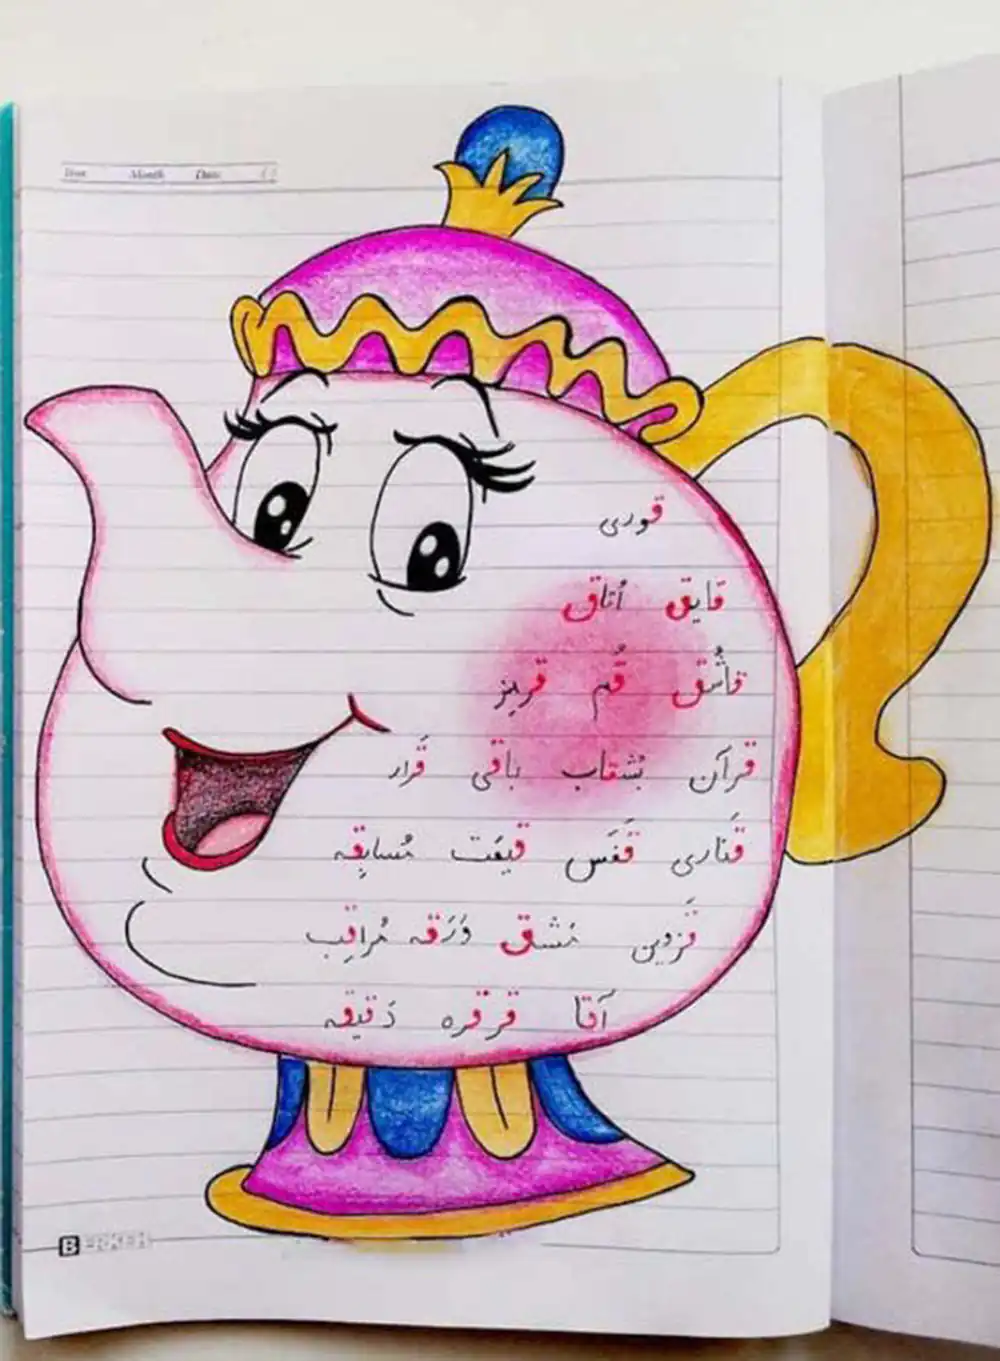 Year Month Date
قوری
قایق اُتاق
قاشُق قُم قرمز
قرآن بُشقاب باقی قَرار
قَناری قَفَس قیمَت مُسابِقه
قَزوین مَشق وَرَقه مُراقِب
آقا قرقره دَقیقه
BERKEH